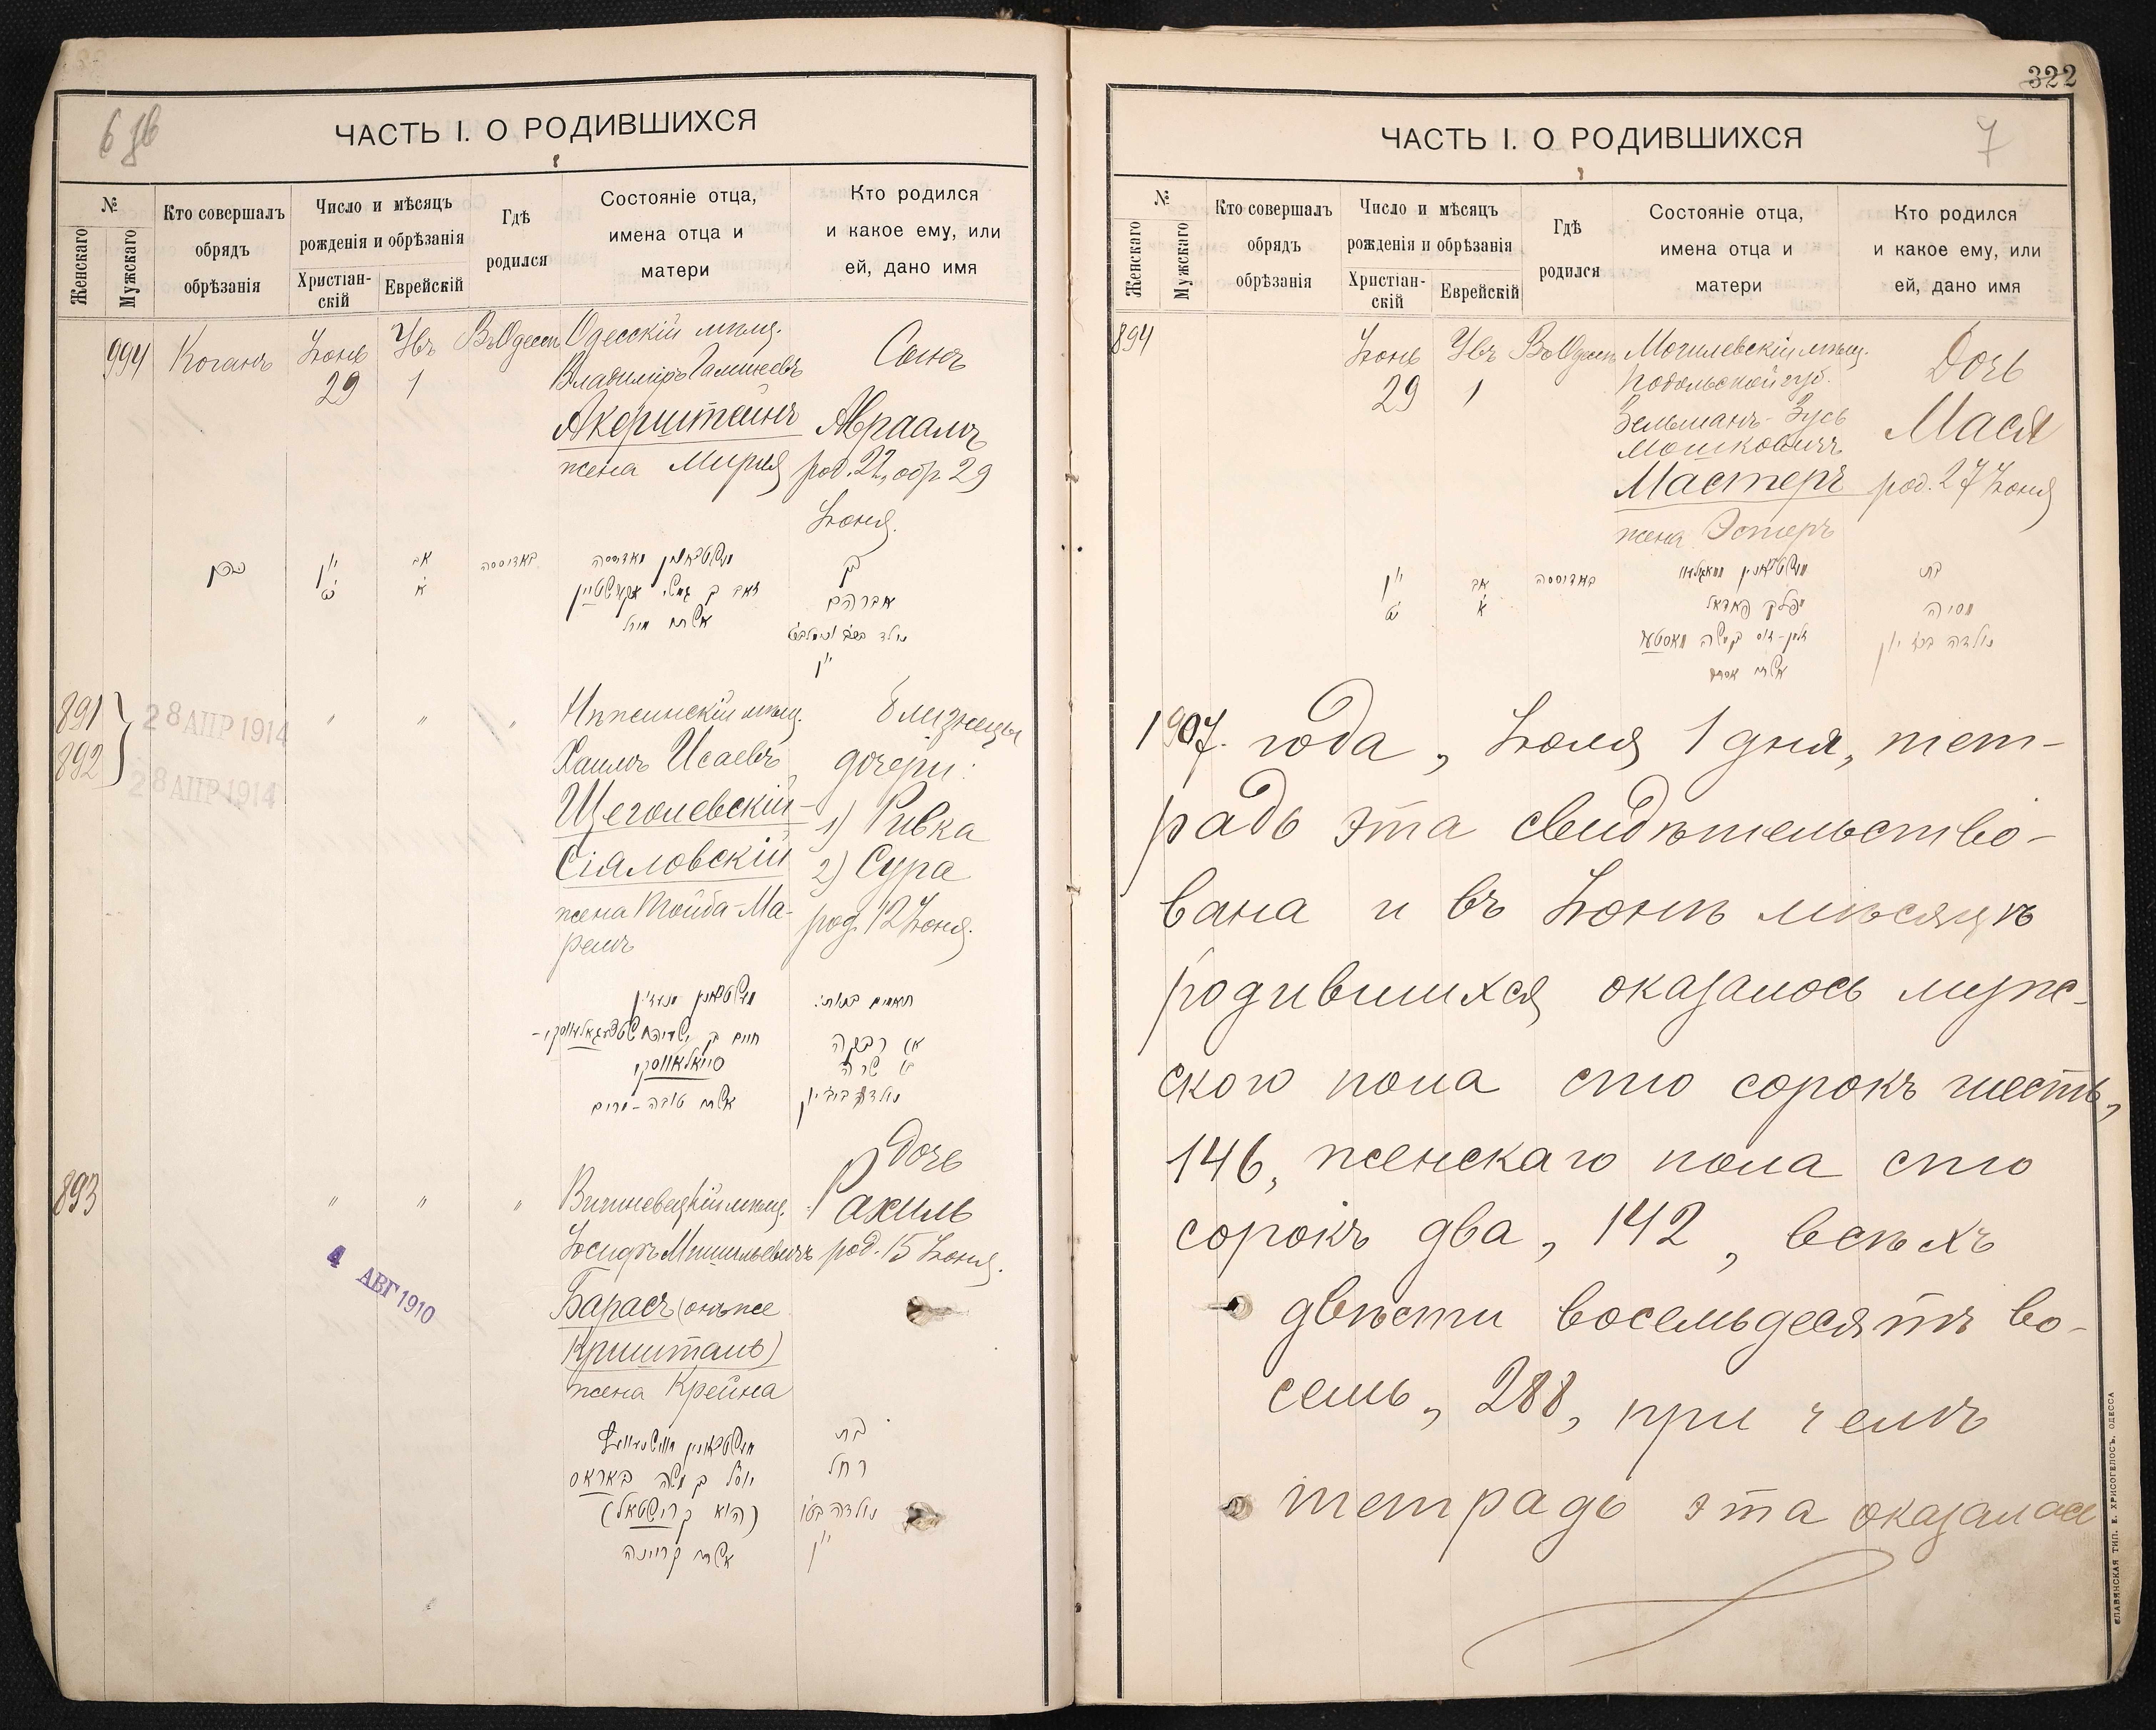 6 зв
ЧАСТЬ I. О РОДИВШИХСЯ
№
Женскаго
Мужскаго
Кто совершалъ
обрядъ
обрѣзанія
Число и мѣсяцъ
рожденія и обрѣзанія
Христіан-
скій
Еврейскій
Гдѣ
родился
Состояніе отца,
имена отца и
матери
Кто родился
и какое ему, или
ей, дано имя
994
Коганъ
Іюнь
29
1
Одесскій мѣщ.
Владиміръ
Акерштейнъ
жена Мирля
Сынъ
Авраамъ
род. 22, обр 29
Іюня.
יון
אב
א
באדיססה
אשתו מירל
בן
אברהם
יון
891
892
28 АПР 1914
28 АПР 1914
" " "
Нѣжинскій мѣщ.
Хаимъ Исаевъ
Щеголевскій-
Сіяловскій
жена Тойба-Ма-
ремъ
близнецы
дочери:
1) Ривка
2) Сура
род. 12 Іюня.
סייאלאווסקי
אשתו טובה-מרים
רבקה
שרה
893
" " "
4 АВГ 1910
Вишневецкій мѣщ.
Іосифъ
Барасъ (онъ же
Кришталь)
жена Крейна
Дочь
Рахиль
род. 15 Іюня.
יוסף בן משה באראס
(הוא קרישטאל)
אשתו קריינה
בת
רחל
יון
322
7
ЧАСТЬ I. О РОДИВШИХСЯ
№
Женскаго
Мужскаго
Кто совершалъ
обрядъ
обрѣзанія
Число и мѣсяцъ
рожденія и обрѣзанія
Христіан-
скій
Еврейскій
Гдѣ
родился
Состояніе отца,
имена отца и
матери
Кто родился
и какое ему, или
ей, дано имя
894
Іюнь
29
1
Могилевскій мѣщ.
Подольской губ.
Зельманъ-Зусь
Мошковичъ
Мастеръ
жена Эстеръ
Дочь
Мася
род. 27 Іюня
יון
אב
א
באדיססה
בת
מסיה
נולדה בכז יון
1907. года, Іюля 1 дня, тет-
радь эта свидѣтельство-
вана и въ Іюнѣ мѣсяцѣ
родившихся оказалось муж-
ского пола сто сорокъ шесть,
146, женскаго пола сто
сорокъ два, 142, всѣхъ
двѣсти восемьдесятъ во-
семь, 288, при чемъ
тетрадь эта оказалась
СЛАВЯНСКАЯ ТИП. Е. ХРИСОГЕЛОСЪ, ОДЕССА